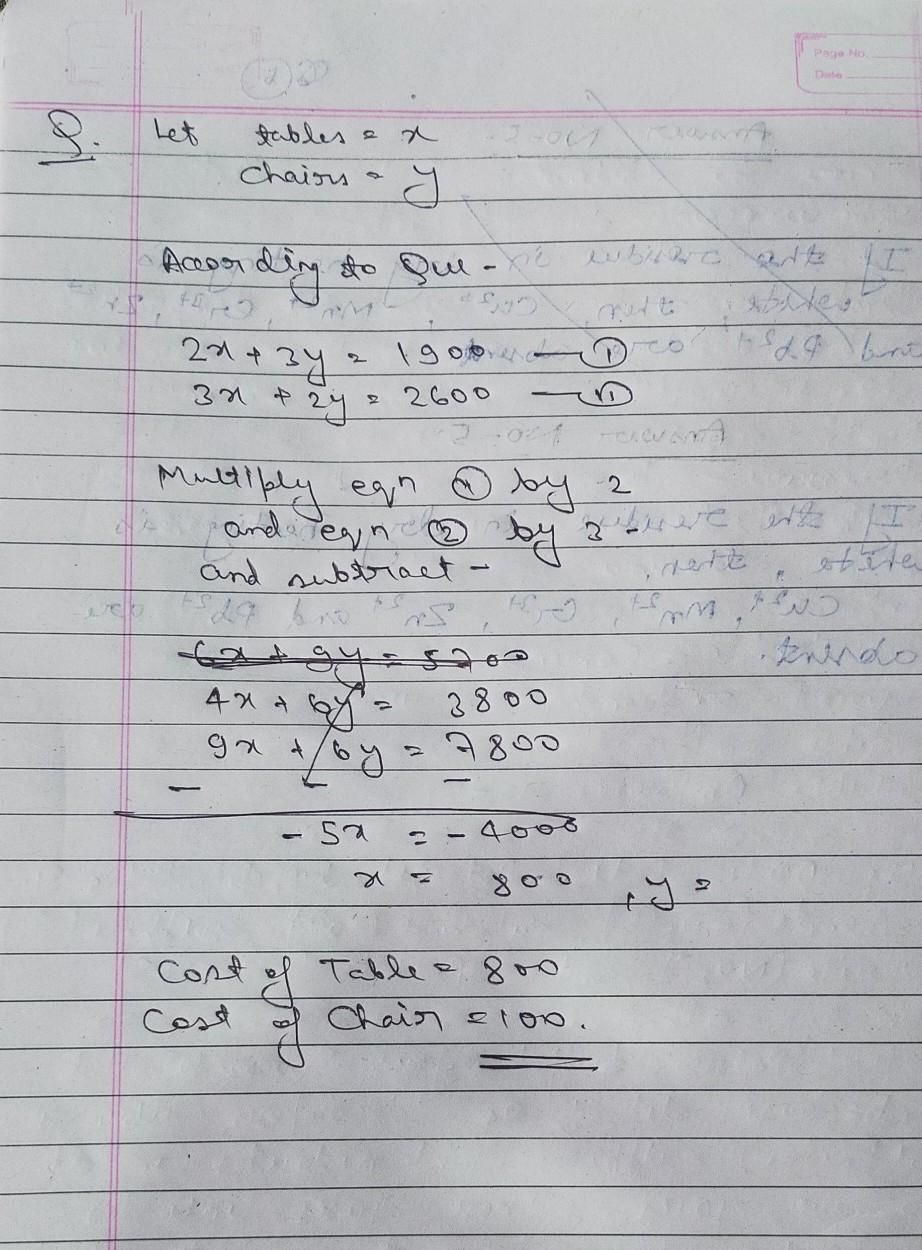 Page No.
Date
Q. Let tables = x
Chairs = y
According to Que -
2x + 3y = 1900 — ①
3x + 2y = 2600 — ⑪
Multiply eqn ① by 2
and eqn ② by 3 -
and subtract -
6x + 9y = 5700
4x + 6y = 3800
9x + 6y = 7800
- - -
- 5x = - 4000
x = 800 , y =
Cost of Table = 800
Cost of Chair = 100.